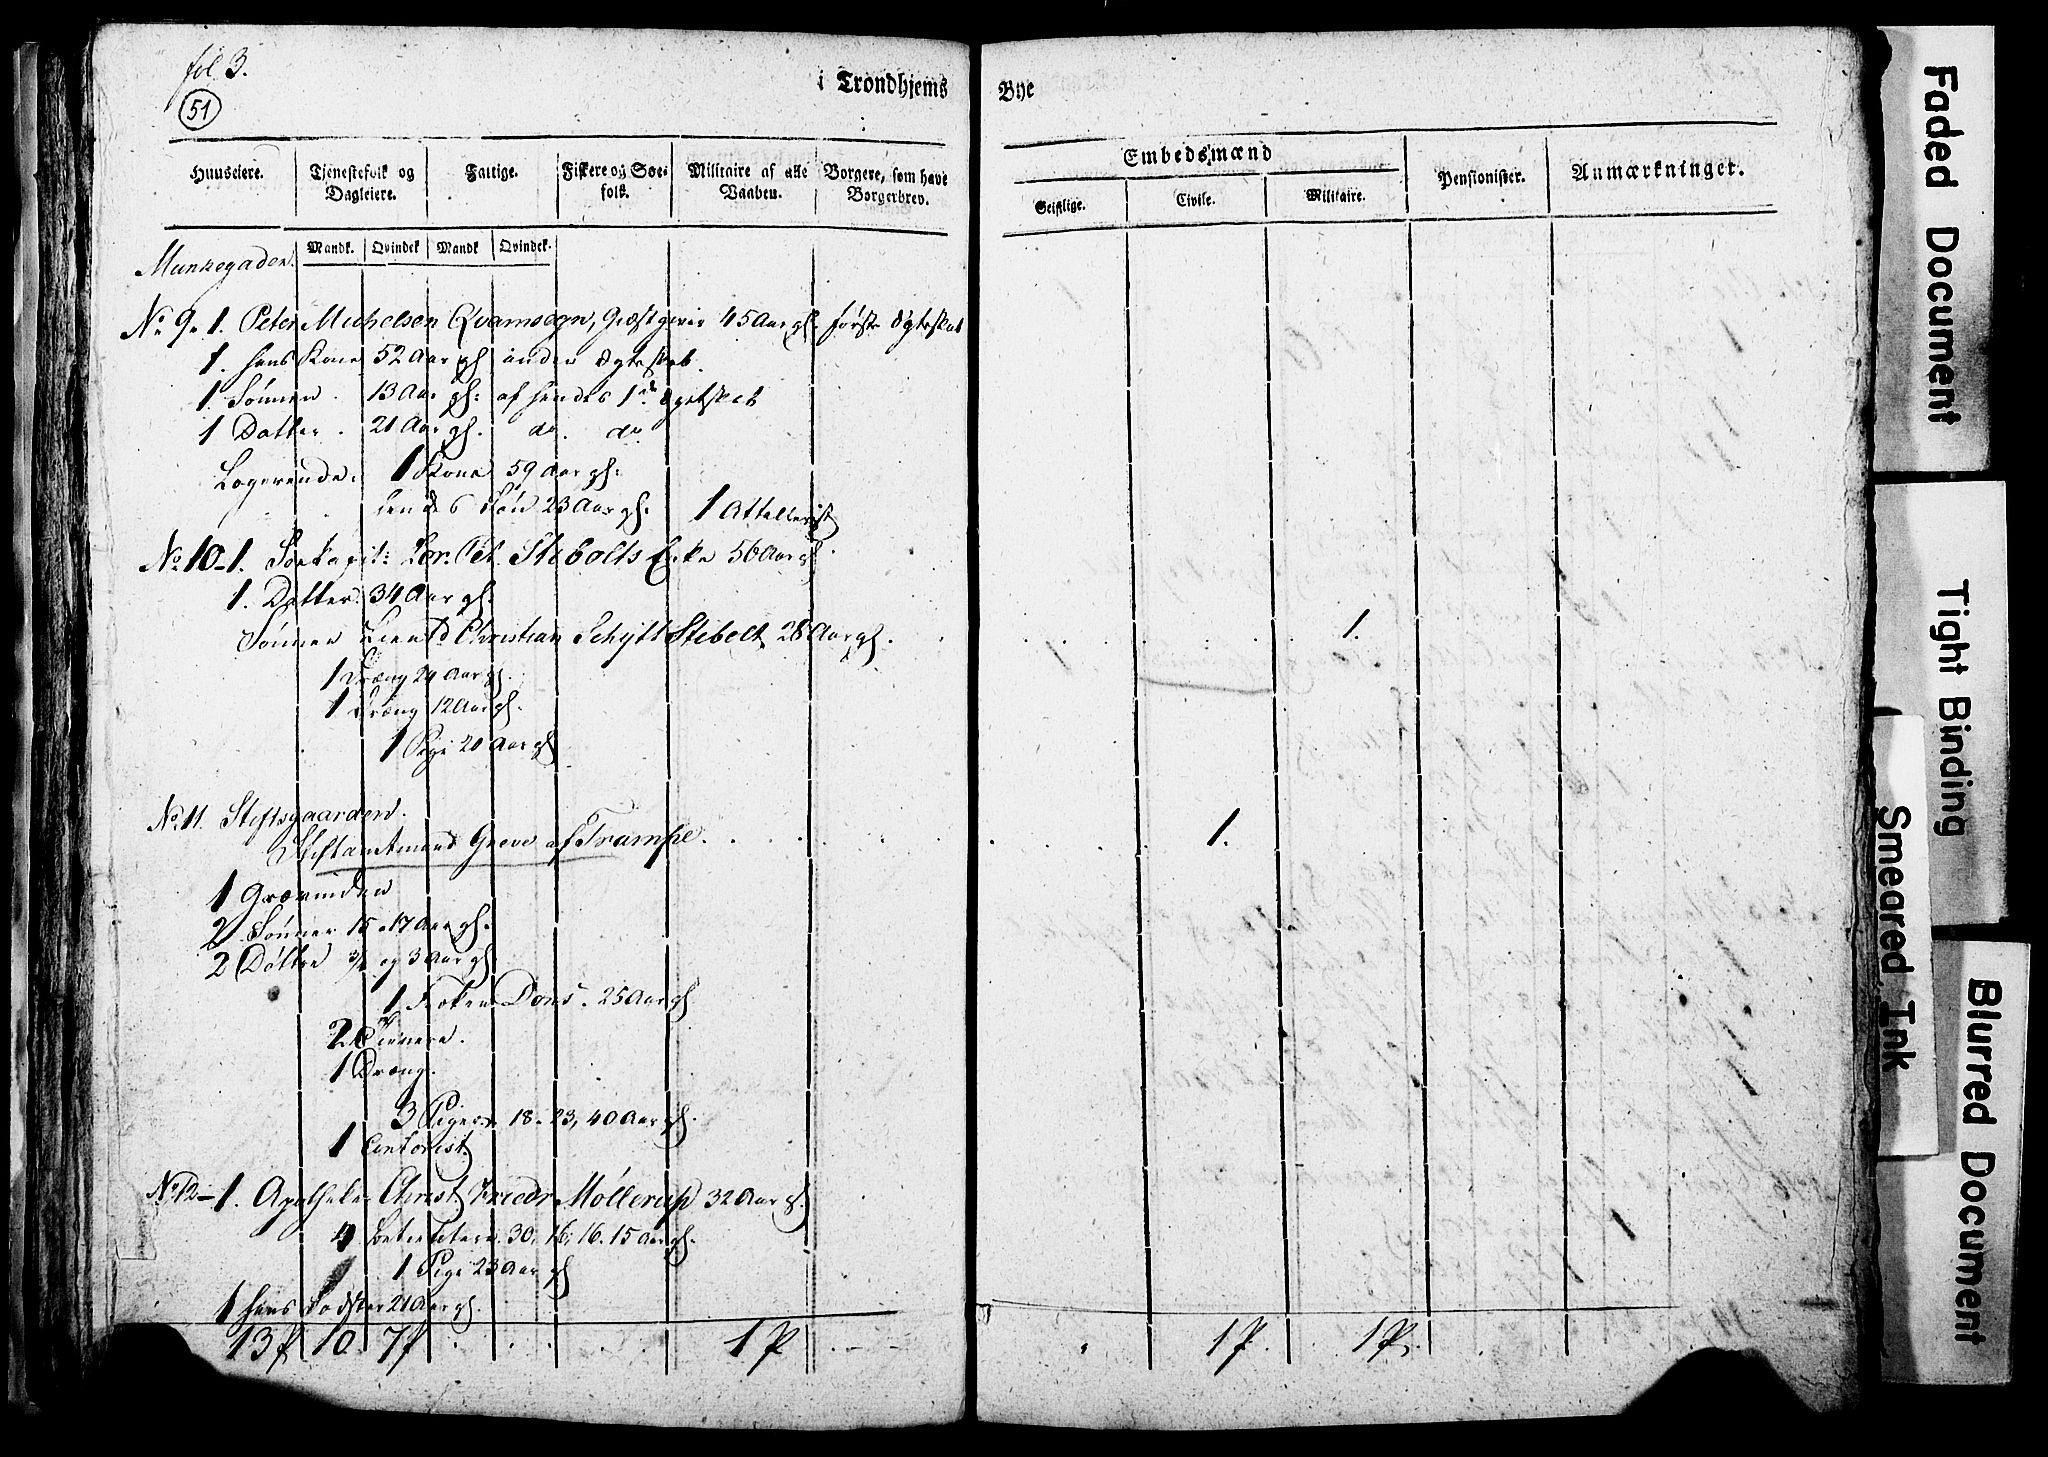 fol. 3.
51
i Trondhjems
Bye
Huuseiere.
Tjenestefolk og Dagleiere.
Fattige.
Fiskere og Søefolk.
Militaire af alle Vaaben.
Borgere, som have Borgerbrev.
Embedsmænd
Geistlige.
Civile.
Militaire.
Pensionister.
Anmærkninger.
Mandk. Qvindek Mandk Qvindek.
Munkegaden
No 9. 1. Peter Michelsen Qvamsøgn, Giæstgiver 45 Aar gl. første Ægteskab
1. hans Kone 52 Aar gl anden Ægteskab.
1. Sønnen. 13 Aar gl: af hendes 1ste Ægetskab
1 Datter. 21 Aar gl. do. do
Logerende. 1 Kone 59 Aar gl:
hendes Søn 23 Aar gl. 1 Attellerist
No 10-1. Søekapit: Lor. Pet. Stibolts Enke 56 Aar gl.
1. Datter 34 Aar gl.
Sønnen Lieut Christian Schytt Stibolt 28 Aar gl. 1.
1 Dræng 24 Aar gl.
1 Dræng 12 Aar gl.
1 Pige 20 Aar gl
No. 11. Stiftsgaarden.
Stiftamtmand Greve af Trampe. 1.
1 Grævinden
2 Sønner 15. 17 Aar gl.
2 Døttre og 3 Aar gl
1 Frøken Dons. 25 Aar gl
2 Tienere.
1 Dræng.
3 Piger 18. 23, 40 Aar gl.
1 Contorist.
No 12-1. Apotheker Christ Friedr Møllerup 32 Aar gl.
4 30. 16. 16. 15 Aar gl.
1 Pige 23 Aar gl
1 hans Sødster 21 Aar gl.
13 P 10 7 P 1 P 1 P. 1 P.
Faded Document
Tight Binding
Smeared Ink
Blurred Document